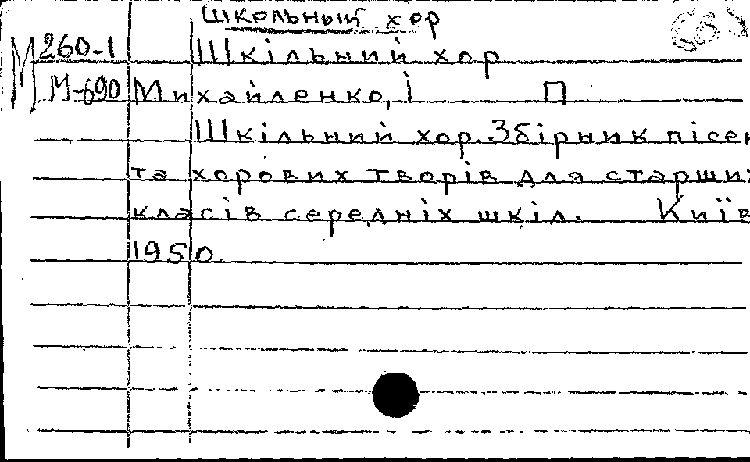 Школьный хор
260-1 Шкільний хор
М М-690 Михайленко, І П
Шкільний хор. Збірник пісен
та хорових творів для старших
класів середніх шкіл. Київ
1950.